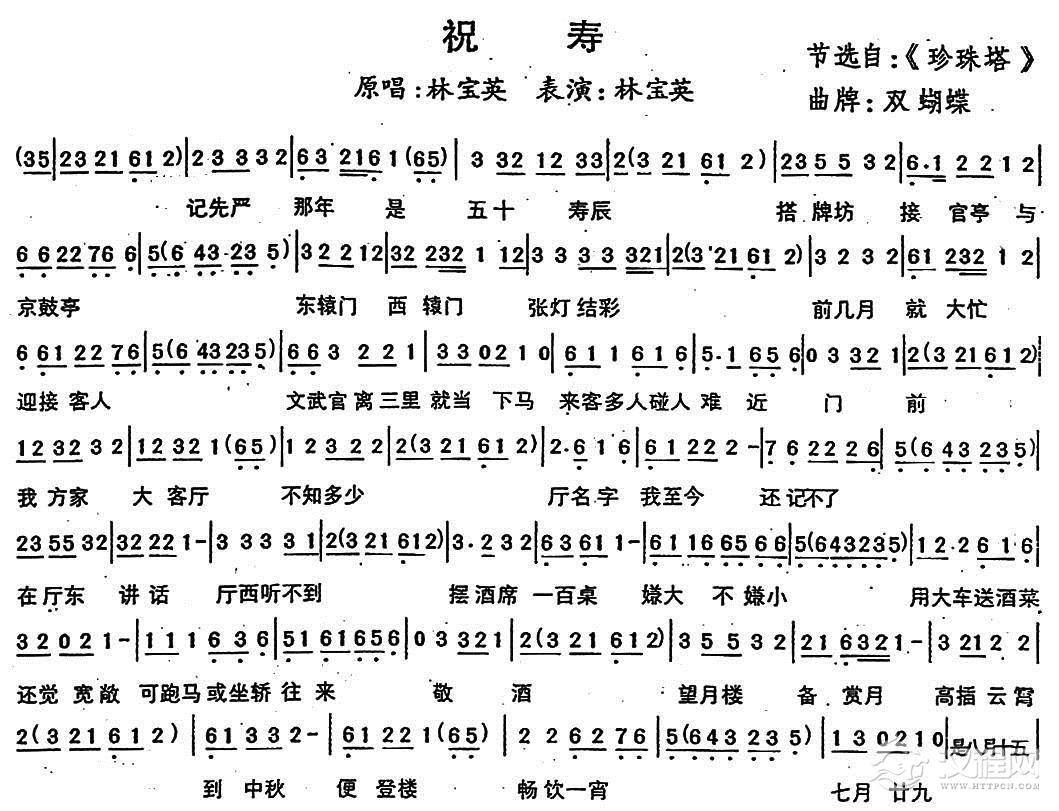 祝 寿
节选自：《珍珠塔》
原唱：林宝英 表演：林宝英
曲牌：双蝴蝶
(35|23 21 61 2)|2 3 3 3 2|63 2161(65)|3 32 12 33|2(3 21 61 2)|23 5 5 3 2|6.1 2 2 1 2|
记先严 那年 是 五十 寿辰 搭牌坊 接 官亭 与
6 6 22 76 6|5(6 43·23 5)|3 2 2 1 2|32 232 1 12|3 3 3 3 321|2(3 21 61 2)|3 2 3 2|61 232 1 2|
京鼓亭 东辕门 西 辕门 张灯结彩 前几月 就 大忙
6 61 22 76|5(6 43235)|663 2 2 1|3 3 0 2 1 0|6 1 1 6 1 6|5·1 65 6|0 3 32 1|2(3 21 61 2)|
迎接 客人 文武官离三里就当 下马 来客多人碰人难 近 门 前
12 32 3 2|12 32 1(65)|12 3 2 2|2(3 21 61 2)|2·6 1 6|61 22 2-|76 22 2 6|5(6 43 23 5)|
我方家 大 客厅 不知多少 厅名字 我至今 还记不了
23 55 32|32 22 1-|3 3 3 3 1|2(3 21 61 2)|3·2 3 2|63 61 1-|61 16 65 6 6|5(6 43 23 5)|1 2·2 61 6|
在厅东 讲话 厅西听不到 摆酒席 一百桌 嫌大 不嫌小 用大车送酒菜
3 2 0 2 1-|1 1 1 6 3 6|51 61 65 6|0 3 32 1|2(3 21 61 2)|3 5 5 3 2|21 6321|3 212 2|
还觉 宽敞 可跑马或坐轿往来 敬 酒 望月楼 备 赏月 高插云霄
2(3 21 61 2)|61 33 2-|61 22 1(65)|2 2 62 76|5(6 43 23 5)|1 3 0 2 1 0|是八月十五
到 中秋 便 登楼 畅饮一宵 七月 廿九
汉程网
WWW.HTTPCN.COM